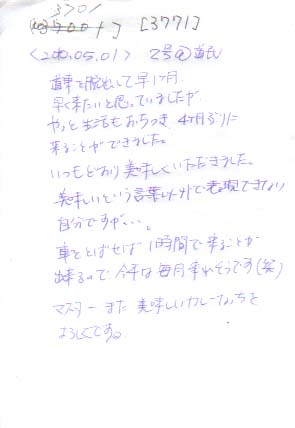 3701
[3771]
<2010.05.01> 2号@道民
車を脱出して早1ヶ月。
早く来たいと思っていましたが
やっと生活もおちつき 4ヶ月ぶりに
来ることができました。
いつもどおり美味しくいただきました。
美味しいという言葉以外で表現できない
自分ですが・・・。
車をとばせば 1時間で来ることが
出来るので 今年は毎月来れそうです(笑)
マスター また 美味しいカレーなっちを
よろしくです。